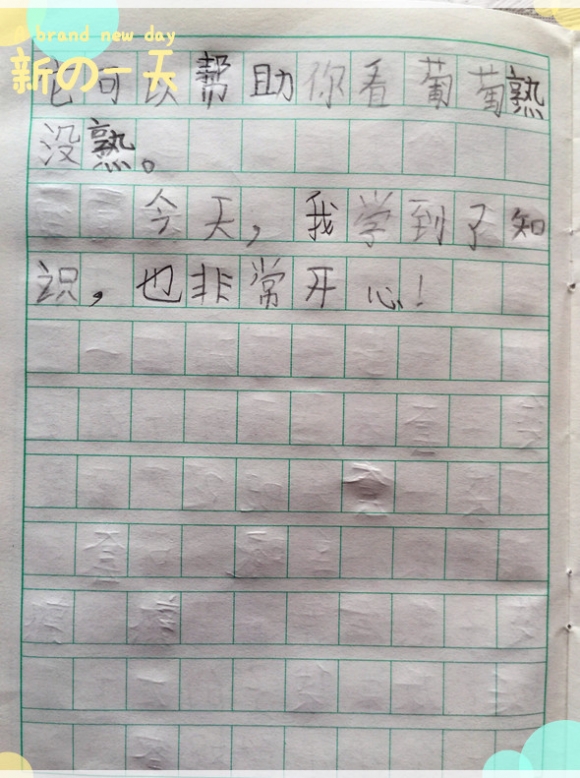 A brand new day
新の一天
它可以帮助你看葡萄熟
没熟。
今天，我学到了知
识，也非常开心！